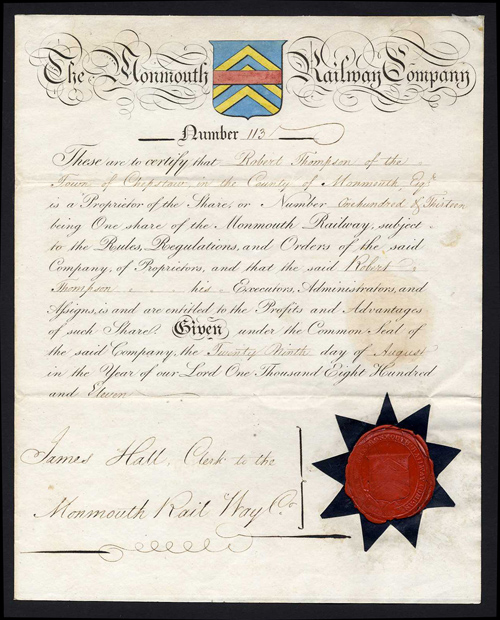 The Monmouth Railway Company
Number 113
These are to certify that Robert Thompson of the
Town of Chepstow, in the County of Monmouth, Esqr.
is a Proprietor of the Share, or Number One hundred & Thirteen
being One share of the Monmouth Railway, subject
to the Rules, Regulations, and Orders of the said
Company, of Proprietors, and that the said Robert
Thompson his Executors, Administrators, and
Assigns, is and are entitled to the Profits and Advantages
of such Share. Given under the Common Seal of
the said Company, the Twenty Ninth day of August
in the Year of our Lord One Thousand Eight Hundred
and Eleven
James Hall, Clerk to the
Monmouth Rail Way Co.